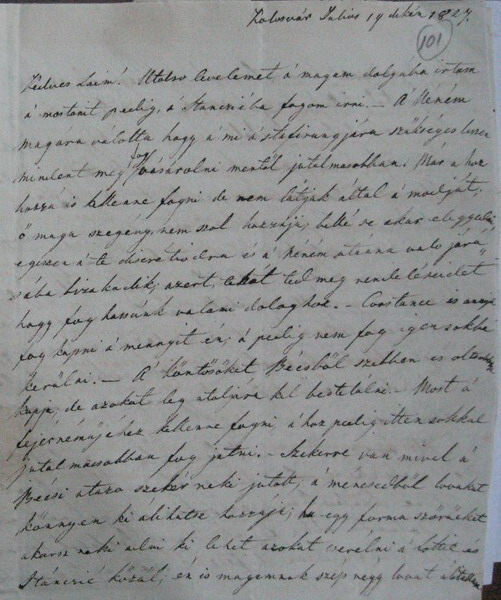 Kolosvár Julius 19 dikén 1827.
101
Kedves Laim! Utolso levelemet á magam dolgába irtam
á mostanit pedig, á Stancziéba fogom irni. — A Néném
magara válolta hogy á mi á stafirungjára szükséges leszen
mindent meg fog vásárolni mentöl jutalmasabban. Már a hoz
hozzá is kellene fogni de nem látjuk által á modját;
ő maga szegeny, nem szol hozzája, belé se akar elegyedni
egészen á te discretiodra és á Néném utánna valo járá
sába bizakadik; azert, tehát tedd meg rendeléseidet
hogy foghassunk valami dologhoz. — Constance is annyit
fog kapni á mennyit én; á pedig nem fog igen sokba
kerülni. — A köntösöket Bécsböl szebben és olcsobban
kapja, de azokat leg utoljára kel bestelalni. — Most á
fejérnémüjéhez kellene fogni, á hoz pedig itten sokkal
jutalmassabban fog jutni. — Szekerre van mivel á
Bécsi utazo szekér neki jutott; á ménesedböl lovakat
könnyen ki álithatsz hozzája; ha egy forma szörüeket
akarsz neki adni ki lehet azokat cserélni á Lotti és
Stánczié közül; én is magamnak szép négy lovat